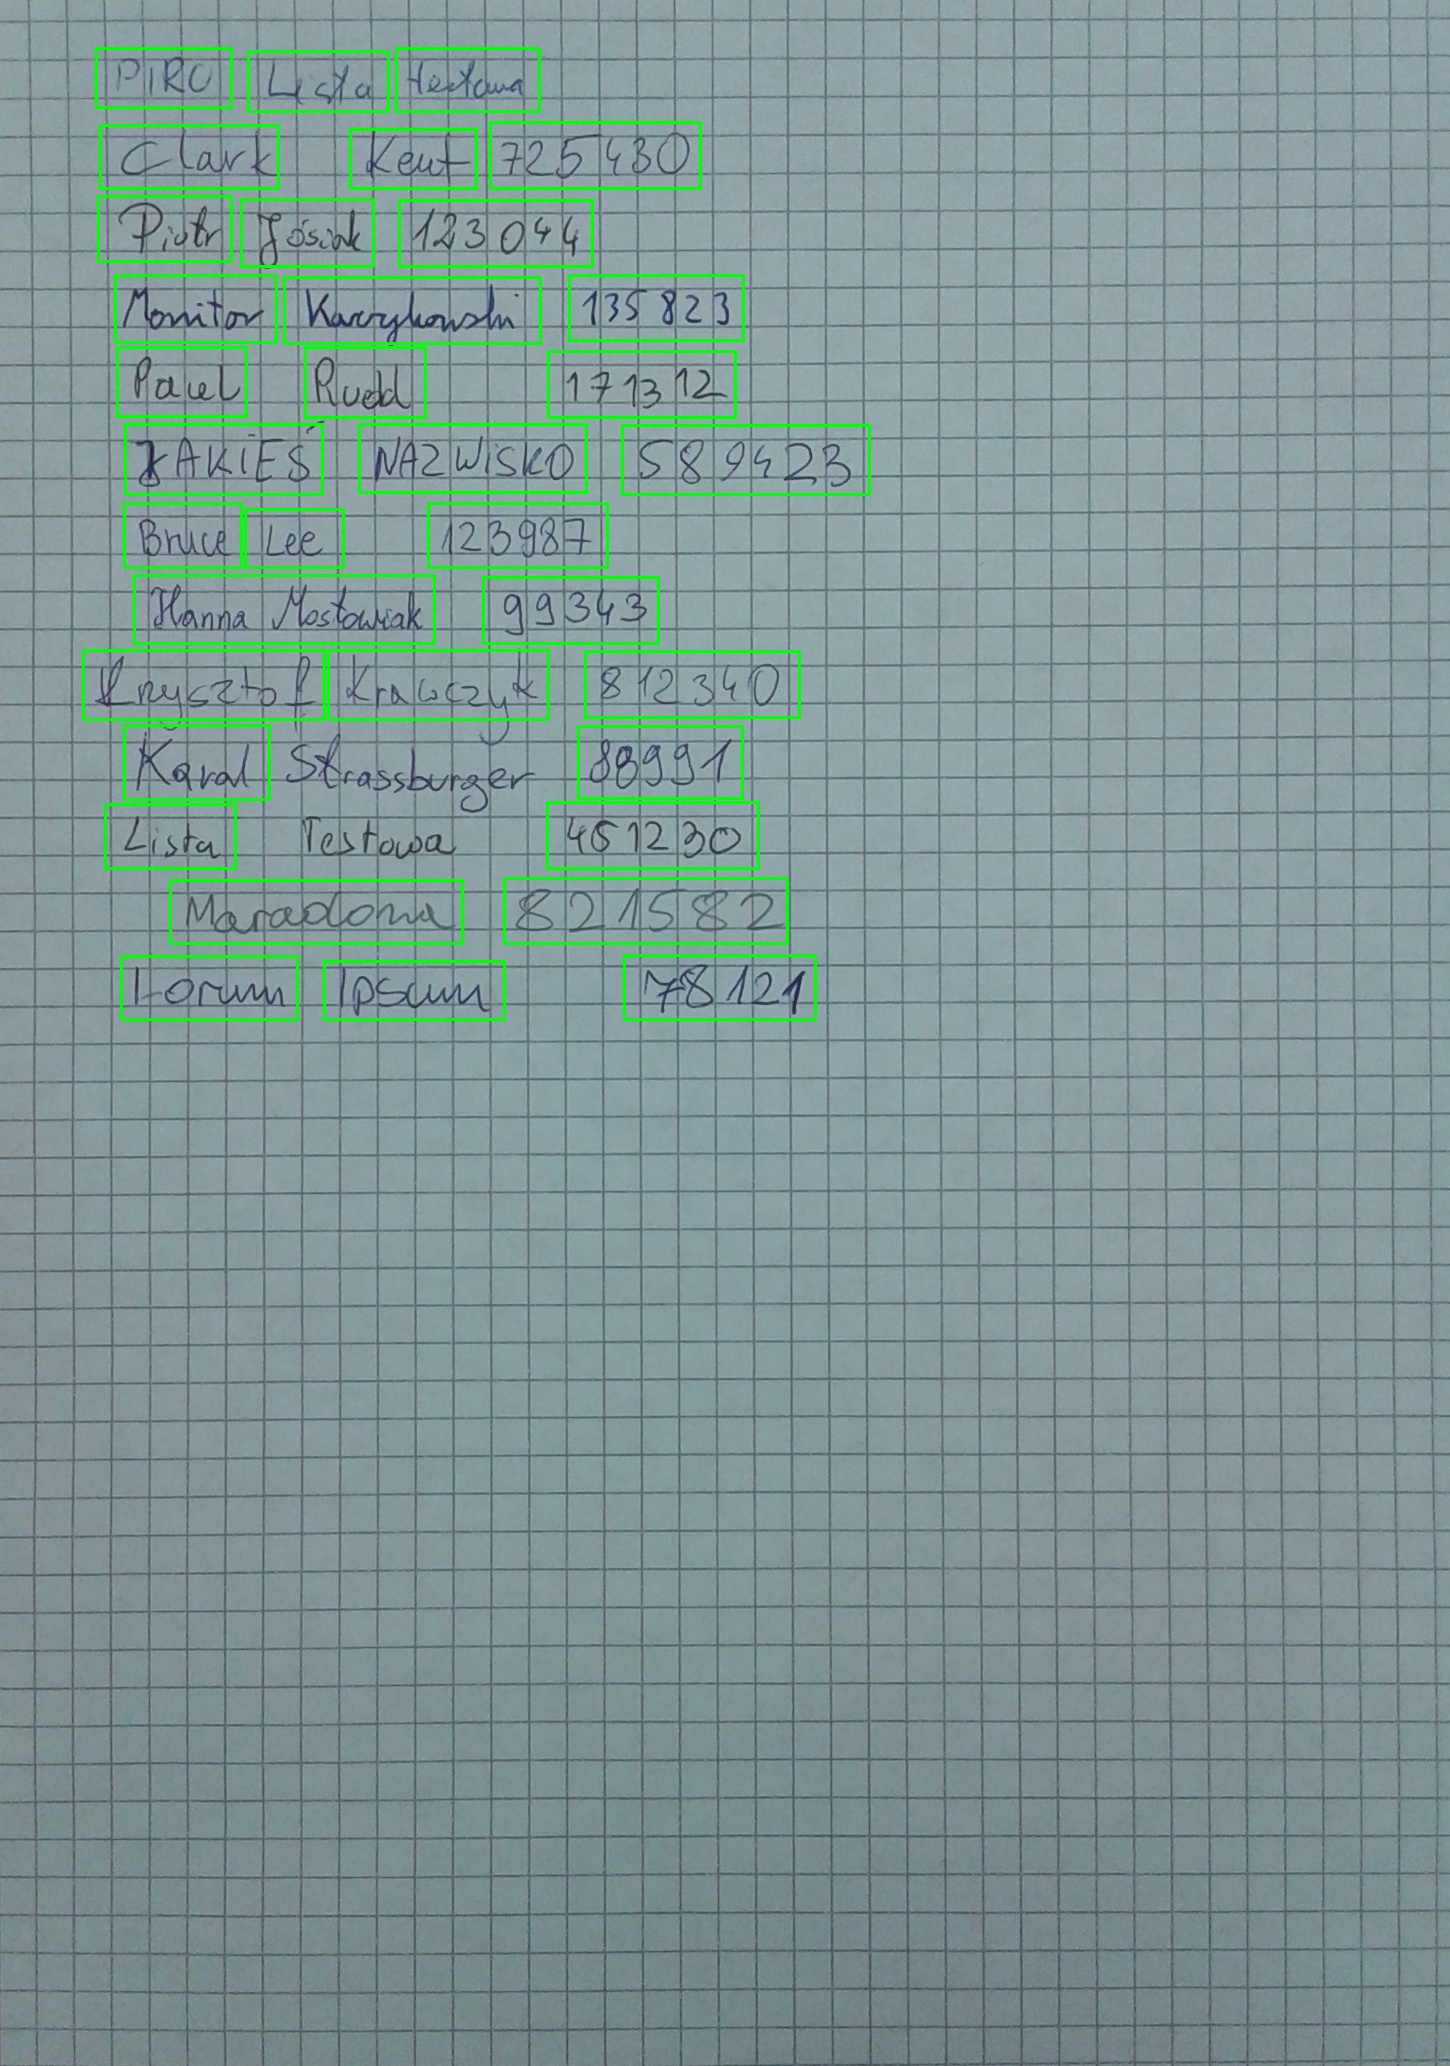 PIRO Lista testowa
Clark Kent 725430
Piotr Jósiak 123044
Monitor Karzykowski 135823
Paul Rudd 171312
JAKIEŚ NAZWISKO 589423
Bruce Lee 123987
Hanna Mostowiak 99343
Krzysztof Krawczyk 812340
Karol Strassburger 88991
Lista Testowa 461230
Maradona 821582
Lorum Ipsum 78121